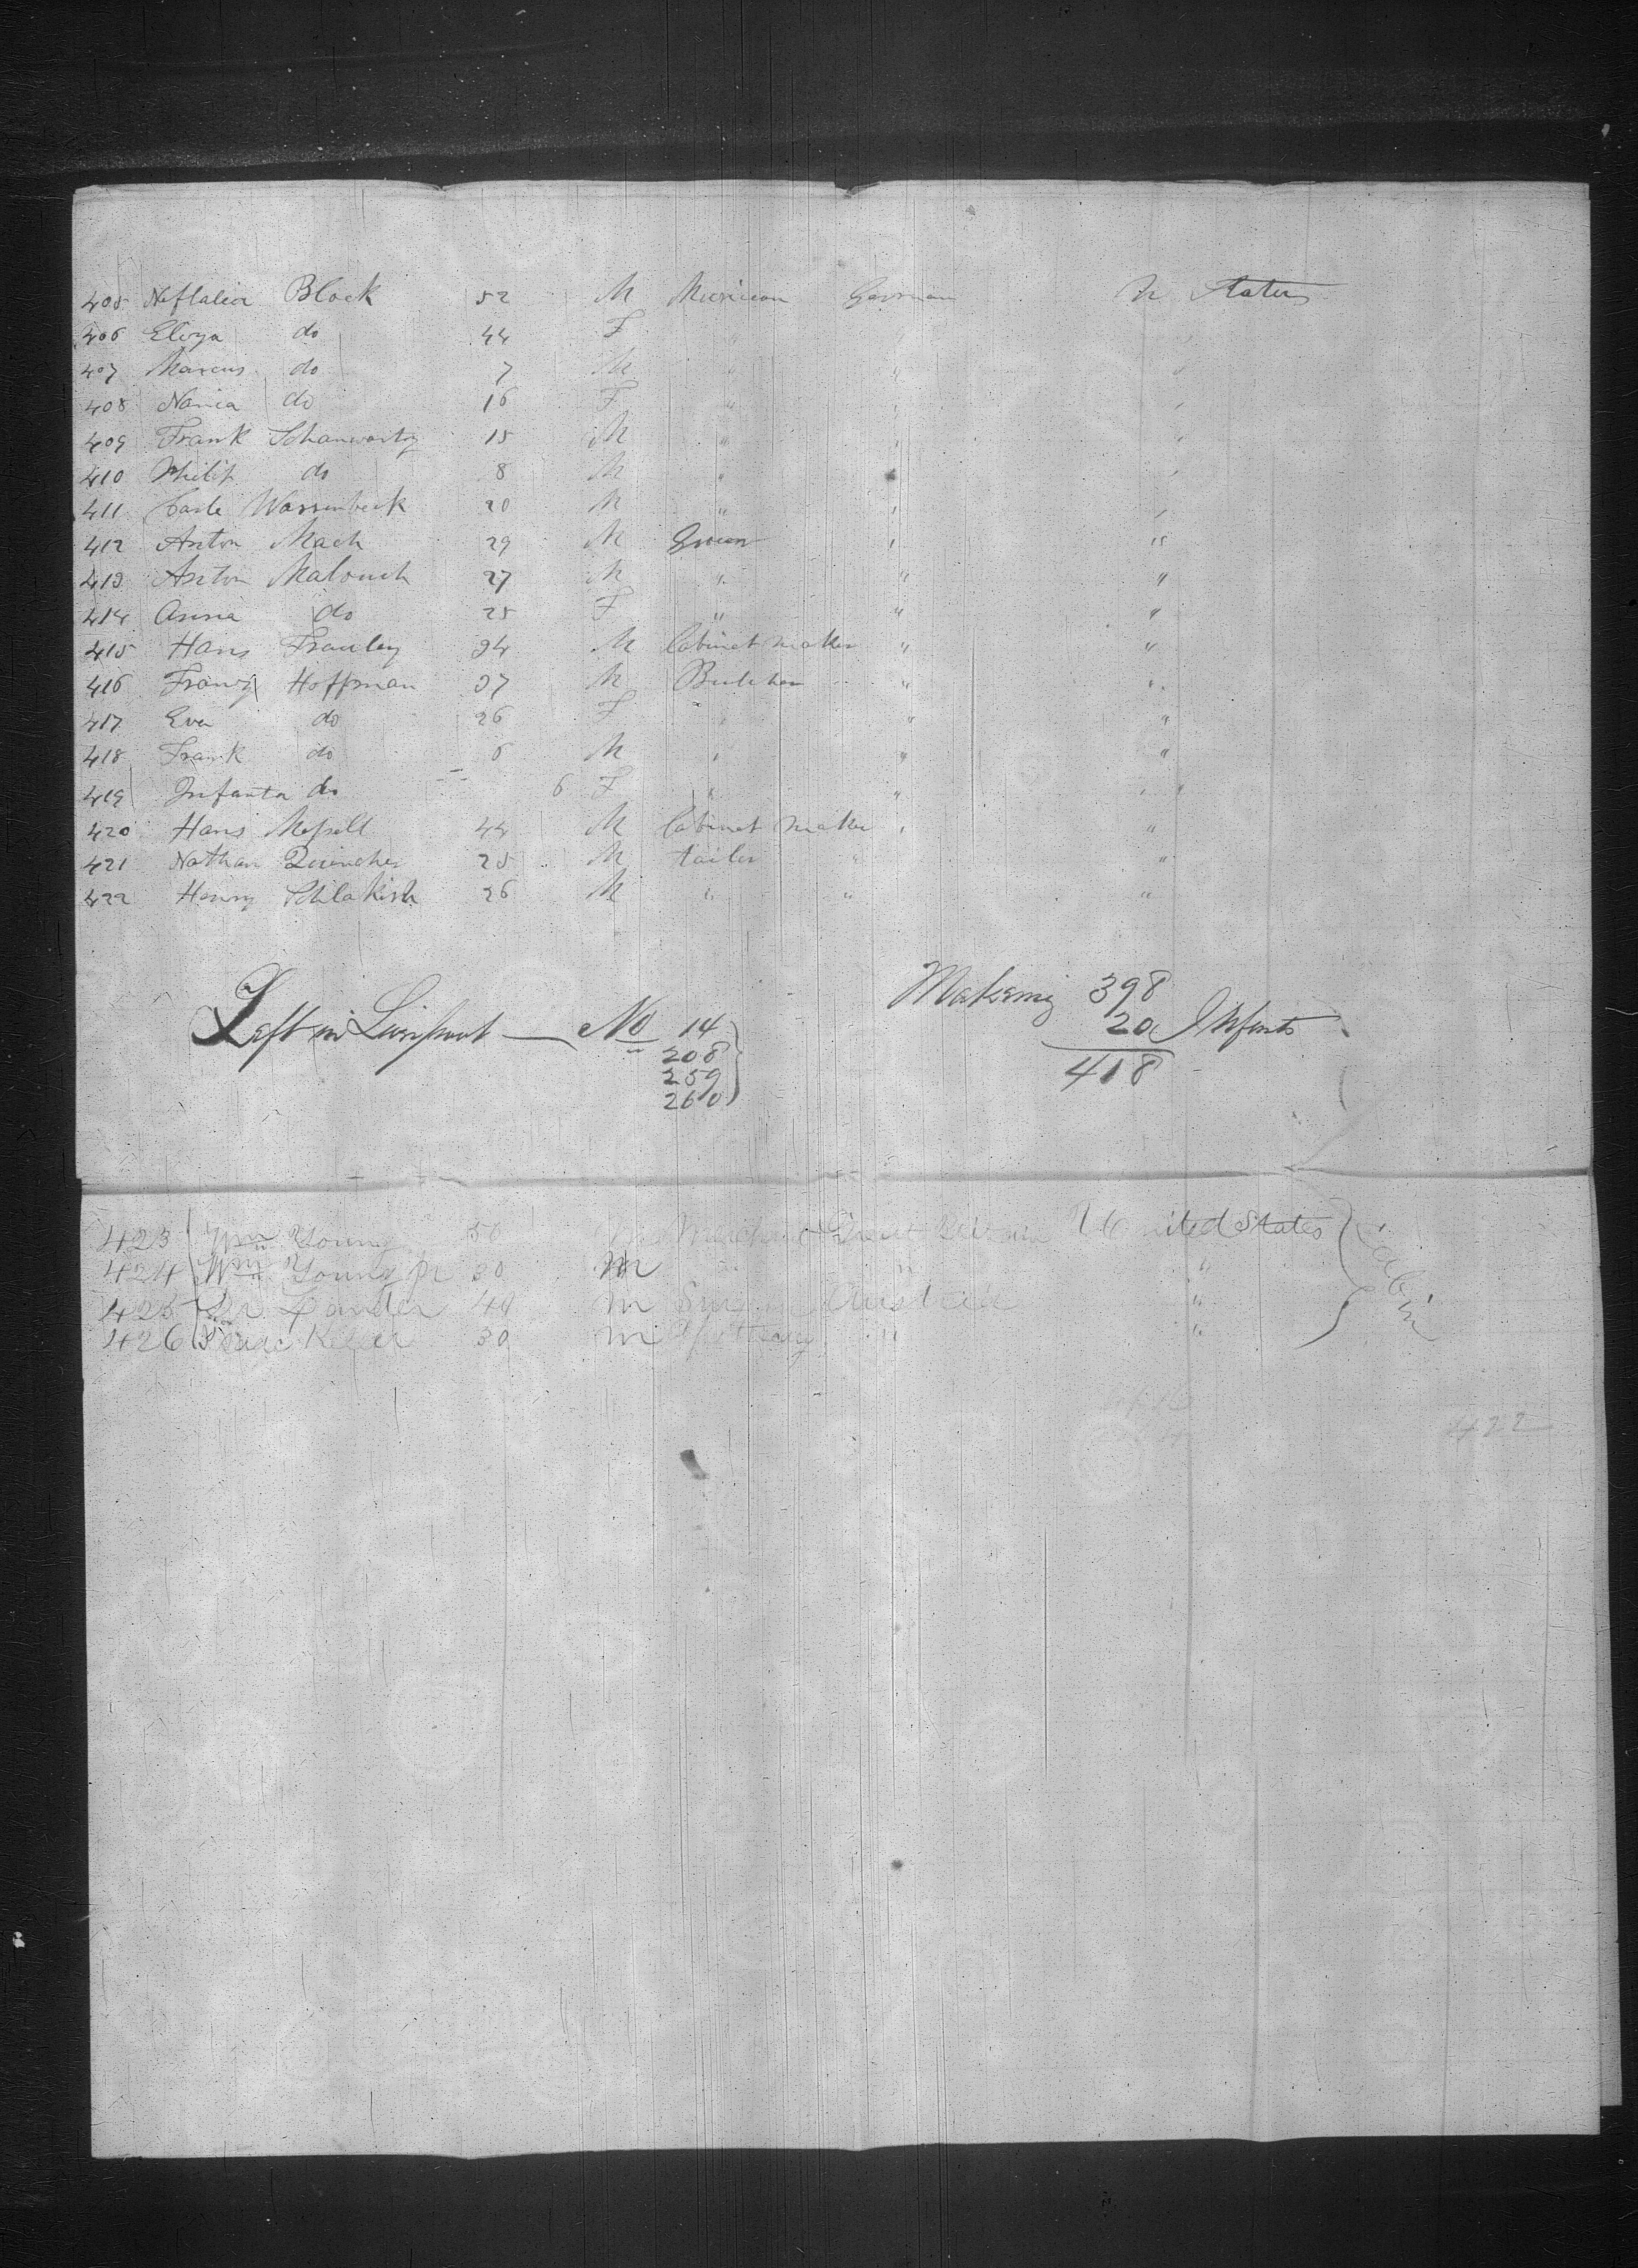 405 Neftalia Block 52 M Musician German U States
406 Eliza do 44 F " " "
407 Marcus do 7 M " " "
408 Nania do 16 F " " "
409 Frank 15 M " " "
410 Philip do 8 M " " "
411 Carle 20 M " " "
412 Anton Mach 29 M " "
413 Anton Malouch 27 M " " "
414 Anna do 25 F " " "
415 Hans 34 M Cabinet maker " "
416 Franz Hoffman 37 M Butcher " "
417 Eva do 26 F " " "
418 Frank do 6 M " " "
419 Infanta do 6 F " " "
420 Hans 44 M Cabinet maker " "
421 Nathan 25 M tailer " "
422 Henry 26 M " " "
Left in Liverpool — No 14
208
259
260
Makeing 398
20 Infants
418
423 Wm Young 50 M Merchant Great Britain United States
424 Wm Young Jr 30 M " "
425 40 M Austria "
426 30 M " "
Cabin
422